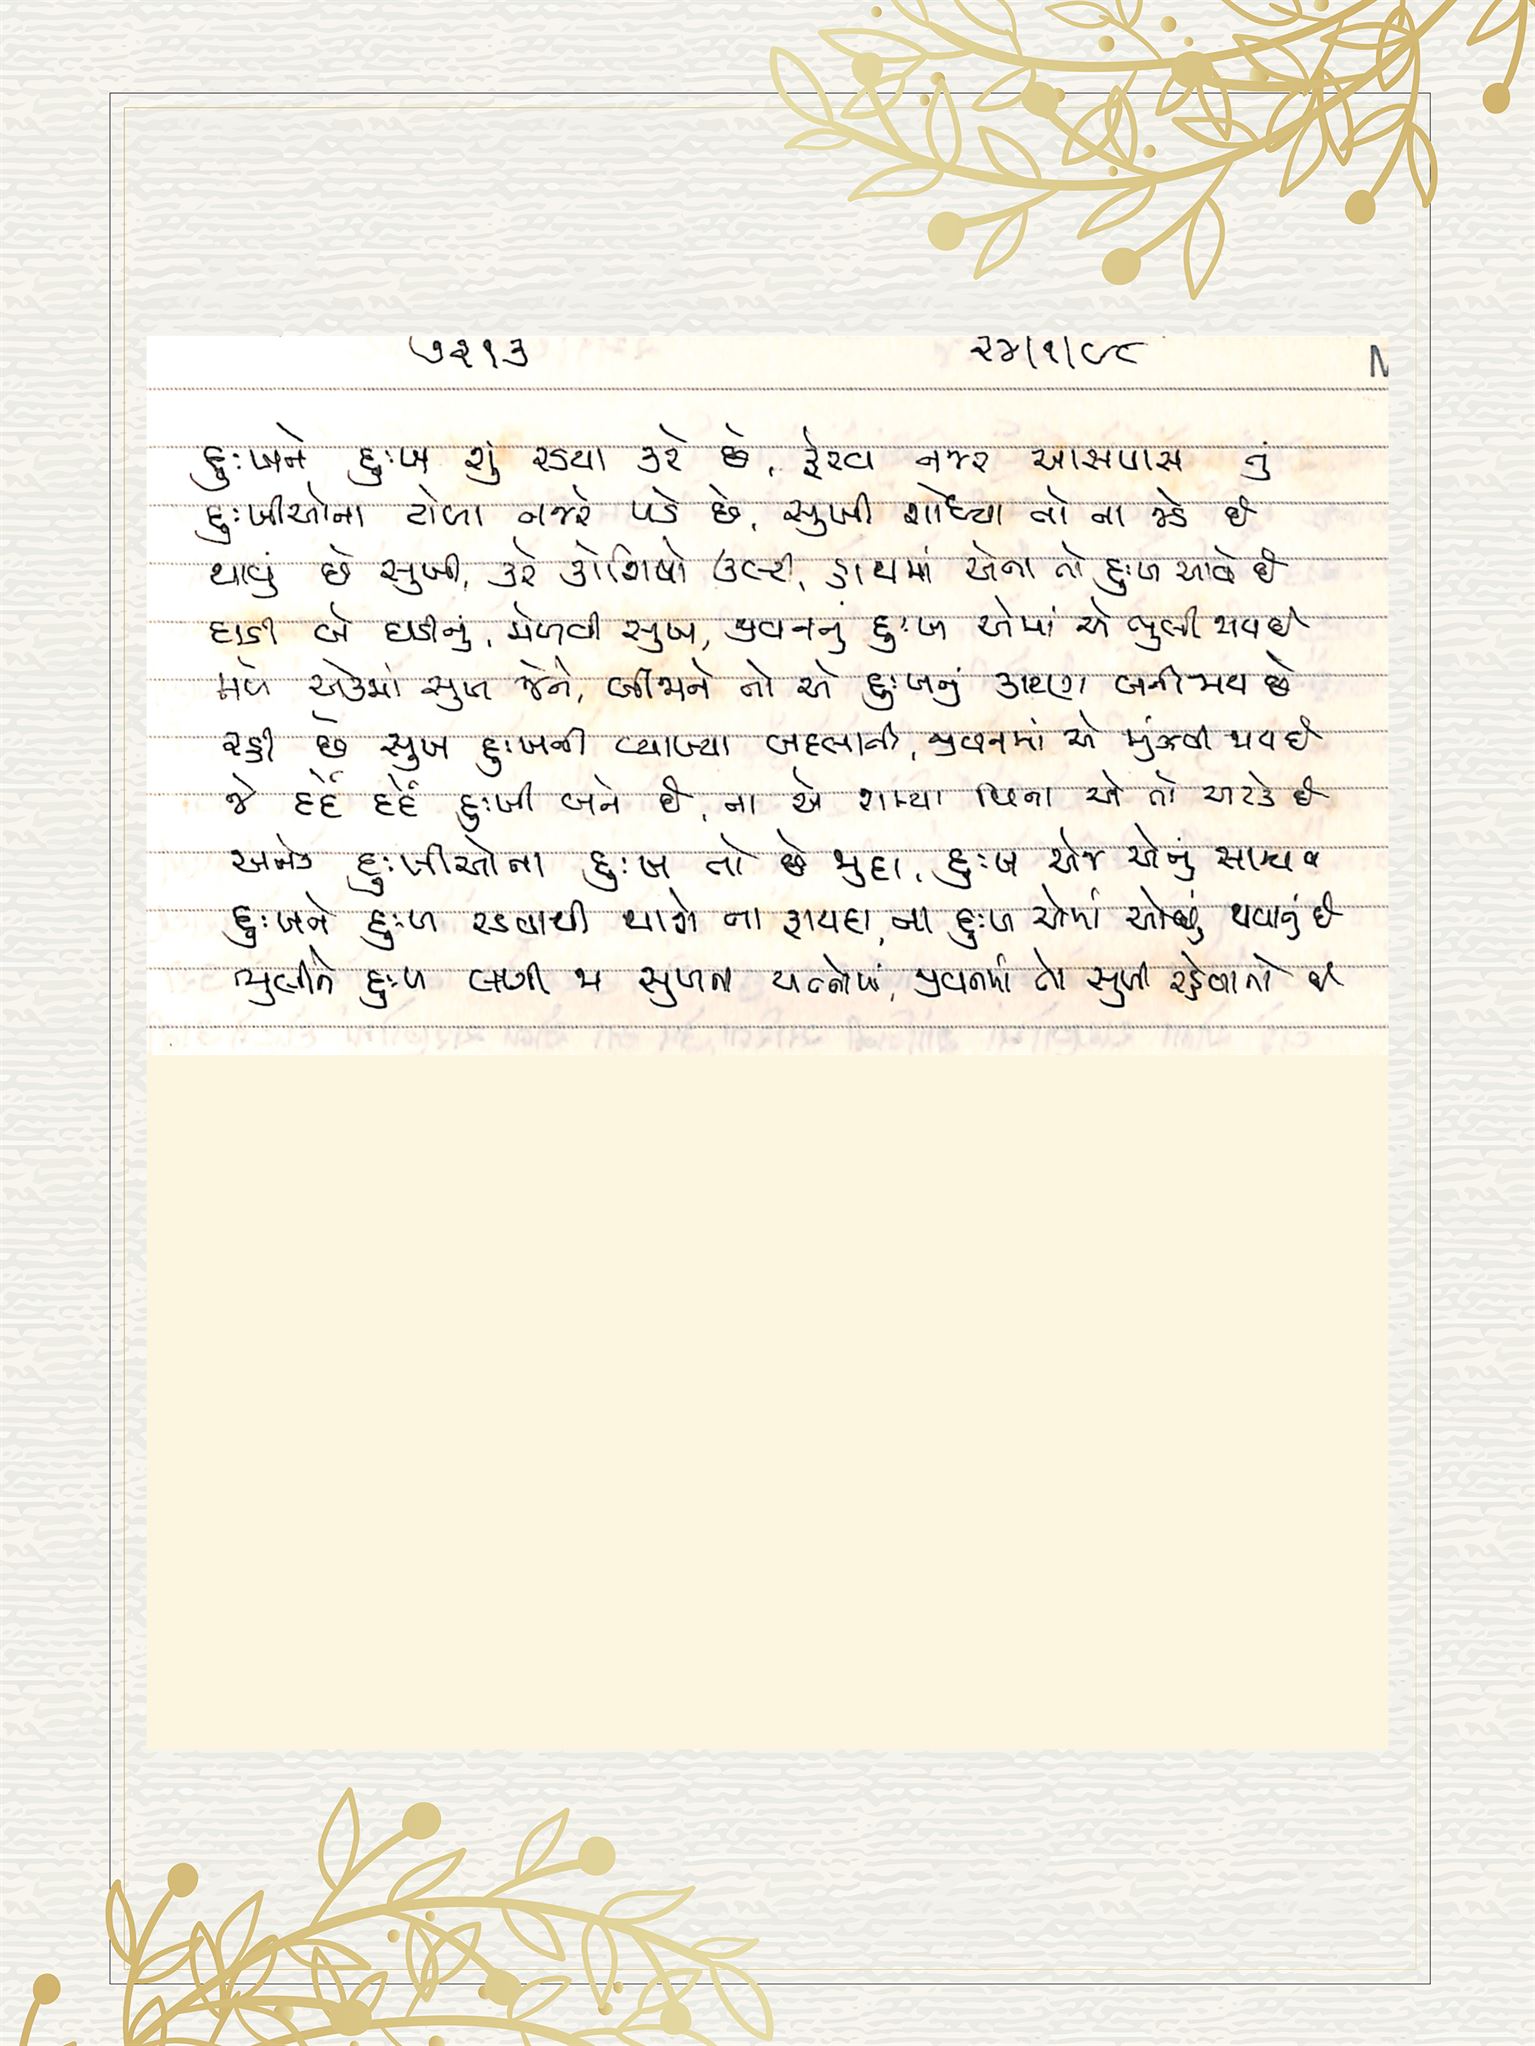 ૭૨૧૩ ૨૪/૧/૯૮ N
દુઃખને દુઃખ શું રડયા કરે છે, ફેરવ નજર આસપાસ તું
દુઃખીઓના ટોળા નજરે પડે છે, સુખી શોધ્યા તો ના જડે છે
થાવું છે સુખી, કરે કોશિષો ઉલ્ટી, હાથમાં એના તો દુઃખ આવે છે
ઘડી બે ઘડીનું, મેળવી સુખ, જીવનનું દુઃખ એમાં એ ભુલી જાય છે
મળે એકમાં સુખ જેને, બીજાને તો એ દુઃખનું કારણ બની જાય છે
રહી છે સુખ દુઃખની વ્યાખ્યા બદલાતી, જીવનમાં એ મુંઝવી જાય છે
જે દર્દે દર્દે દુઃખી બને છે, ના એ શમ્યા વિના એ તો અટકે છે
અનેક દુઃખીઓના દુઃખ તો છે જુદા, દુઃખ એજ એનું સામ્ય છે
દુઃખને દુઃખ રડવાથી થાશે ના ફાયદા, ના દુઃખ એમાં ઓછું થવાનું છે
ભુલીને દુઃખ લાગી જા સુખના યત્નોમાં, જીવનમાં તો સુખી રહેવાનો છે